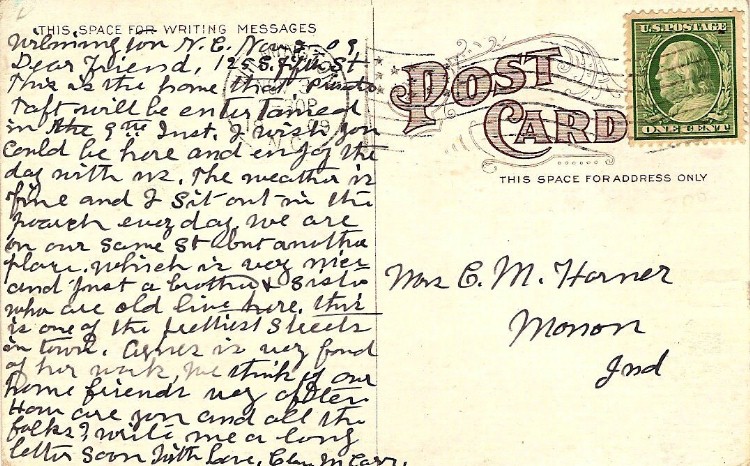 THIS SPACE FOR WRITING MESSAGES
Wilmington N.C. Nov 3 09,
Dear Friend, 125 S. 4th St
This is the home that Presdt
Taft will be entertained
in the 9th Inst. I wish you
could be here and enjoy the
day with us. The weather is
fine and I sit out in the
porch every day we are
on our same St but another
place. which is very nice
and Just a brother & Sister
who are old live here. this
is one of the prettiest Streets
in town. Agnes is very fond
of her work, we think of our
home friends very often
How are you and all the
folks? write me a long
letter soon With Love,
POST
CARD
U.S. POSTAGE
ONE CENT
THIS SPACE FOR ADDRESS ONLY
Mrs C. M. Horner
Monon
Ind